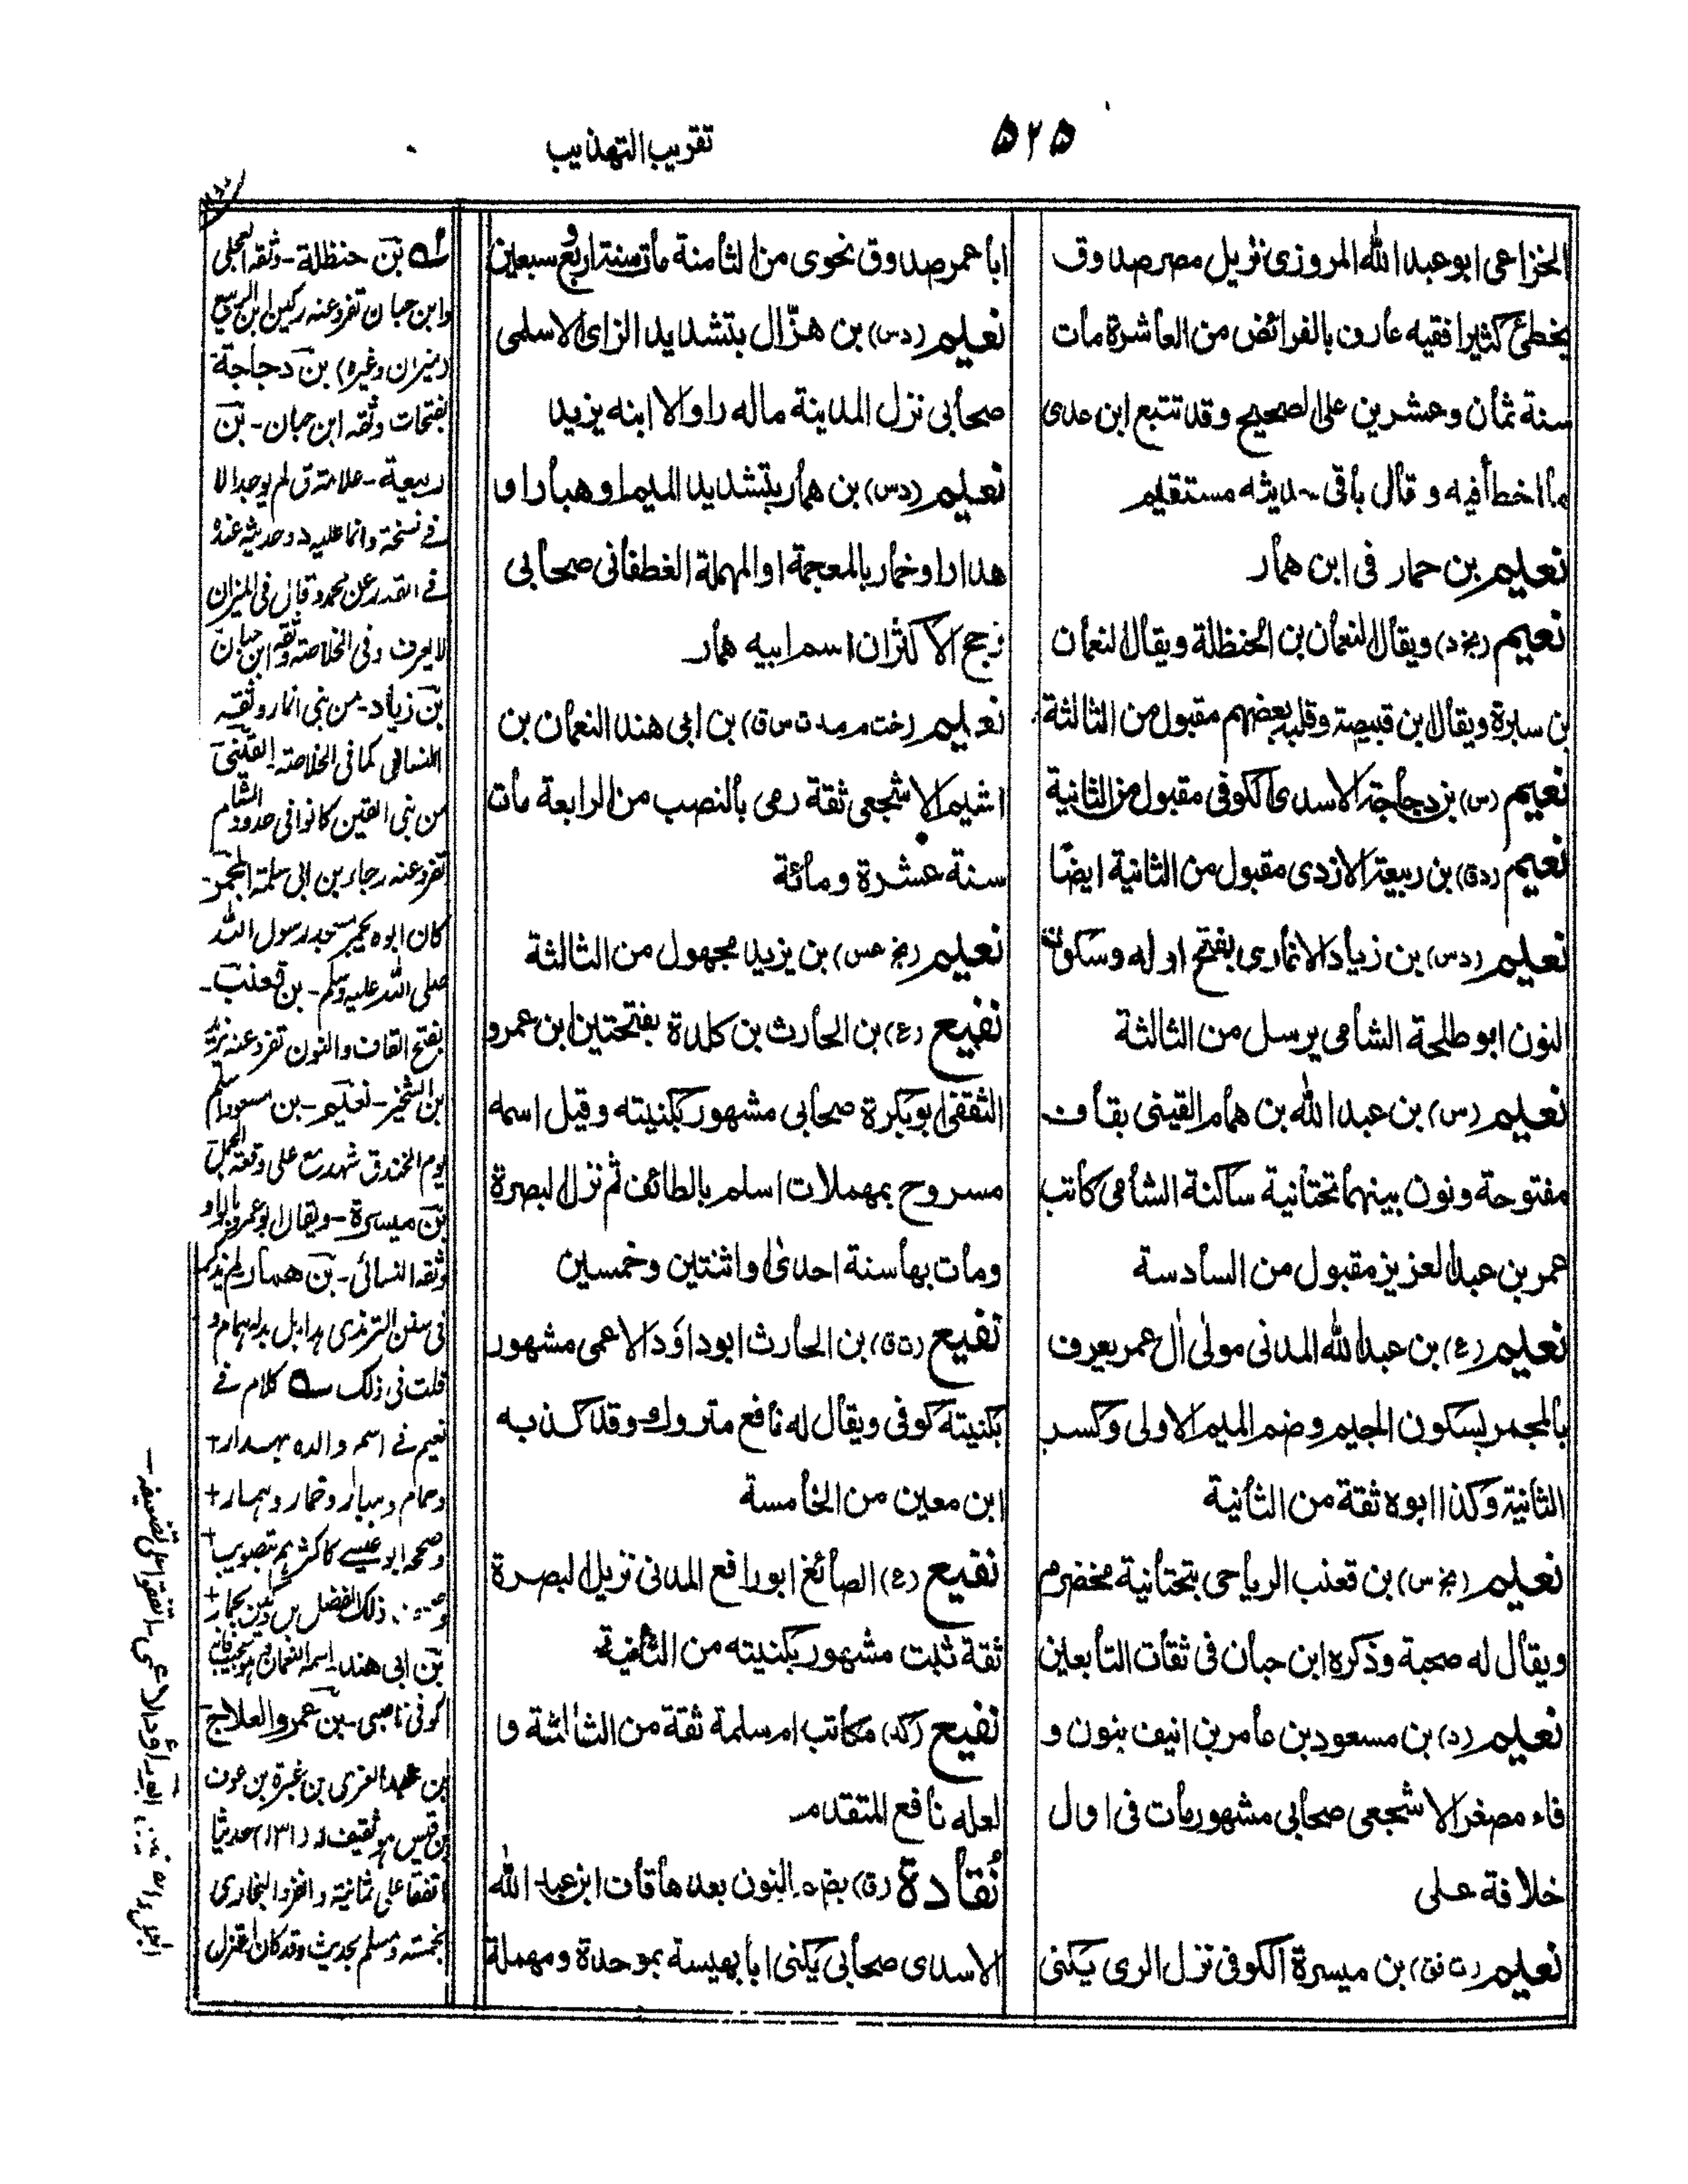 ٥٢٥
تقريب التهذيب
الخزاعى ابو عبد الله المروزى نزيل مصر صدوق
يخطئ كثيرا فقيه عارف بالفرائض من العاشرة مات
سنة ثمان وعشرين على الصحيح وقد تتبع ابن عدى
ما اخطأ فيه وقال باقى حديثه مستقيم
نعيم بن حمار فى ابن همار
نعيم (بخ د) ويقال النعمان بن الحنظلة ويقال النعمان
بن سبرة ويقال ابن قبيصة وقلبه بعضهم مقبول من الثالثة
نعيم (س) بن دجاجة الاسدى الكوفى مقبول من الثانية
نعيم (دق) بن ربيعة الازدى مقبول من الثانية ايضًا
نعيم (دس) بن زياد الانمارى بفتح اوله وسكون
النون ابو طلحة الشامى يرسل من الثالثة
نعيم (س) بن عبد الله بن همام القينى بقاف
مفتوحة ونون بينهما تحتانية ساكنة الشامى كاتب
عمر بن عبد العزيز مقبول من السادسة
نعيم (ع) بن عبد الله المدنى مولى ال عمر يعرف
بالمجمر بسكون الجيم وضم الميم الاولى وكسر
الثانية وكذا ابوه ثقة من الثانية
نعيم (بخ س) بن قعنب الرياحى بتحتانية مخضرم
ويقال له صحبة وذكره ابن حبان فى ثقات التابعين
نعيم (د) بن مسعود بن عامر بن انيف بنون و
فاء مصغر الاشجعى صحابى مشهور مات فى اول
خلافة على
نعيم (ت فق) بن ميسرة الكوفى نزل الرى يكنى
ابا عمر صدوق نحوى من الثامنة مات سنة اربع وسبعين
نعيم (دس) بن هزّال بتشديد الزاى الاسلمى
صحابى نزل المدينة ماله راو الا ابنه يزيد
نعيم (دس) بن همار بتشديد الميم او هبار او
هدار او خمار بالمعجمة او المهملة الغطفانى صحابى
رجح الاكثر ان اسم ابيه همار
نعيم (خت م مد ت س ق) بن ابى هند النعمان بن
اشيم الاشجعى ثقة رمى بالنصب من الرابعة مات
سنة عشرة ومائة
نعيم (بخ عس) بن يزيد مجهول من الثالثة
نفيع (ع) بن الحارث بن كلدة بفتحتين ابن عمرو
الثقفى ابو بكرة صحابى مشهور بكنيته وقيل اسمه
مسروح بمهملات اسلم بالطائف ثم نزل البصرة
ومات بها سنة احدى او اثنتين وخمسين
نفيع (ت ق) بن الحارث ابو داؤد الاعمى مشهور
بكنيته كوفى ويقال له نافع متروك وقد كذبه
ابن معين من الخامسة
نفيع (ع) الصائغ ابو رافع المدنى نزيل البصرة
ثقة ثبت مشهور بكنيته من الثانية
نفيع (كد) مكاتب ام سلمة ثقة من الثالثة و
لعله نافع المتقدم
نُقادة (ق) بضم النون بعدها قاف ابن عبد الله
الاسدى صحابى يكنى ابا بهيسة بموحدة ومهملة
بن حنظلة - وثقه العجلى
وابن حبان تفرد عنه ركين ابن الربيع
(ميزان وغيره) بن دجاجة
بفتحات وثقه ابن حبان - بن
ربيعة - علامته ق لم يوجد الا
فے نسخة وانما عليه د وحديثه عنده
فے القدر عن عمر وقال فى الميزان
لا يعرف وفى الخلاصة وثقه ابن حبان
بن زياد - من بنى انمار وثقه
النسائى كما فى الخلاصة القينى
من بنى القين كانوا فى حدود الشام
تفرد عنه رجاء بن ابى سلمة المجمر
كان ابوه يجمر مسجد رسول الله
صلى الله عليه وسلم - بن قعنب -
بفتح القاف والنون تفرد عنه يزيد
ابن الشخير - نعيم - بن مسعود اسلم
يوم الخندق شهد مع على وقعة الجمل
بن ميسرة - ويقال ابو عمرو بالواو
وثقه النسائى - بن همار لم يذكر
فى سنن الترمذى
قلت فى ذلك كلام فے
نعيم فے اسم والده
وهمام وهبار وخمار وهمار +
بن ابى هند - اسمه النعمان
كوفى ناصبى - بن عمرو العلاج
بن عبد العزى بن غيرة بن عوف
بن قيس هو ثقيف له (١٣٢) حديثا
اتفقا على ثمانية وانفرد البخارى
بخمسة ومسلم بحديث وقد كان اعتزل